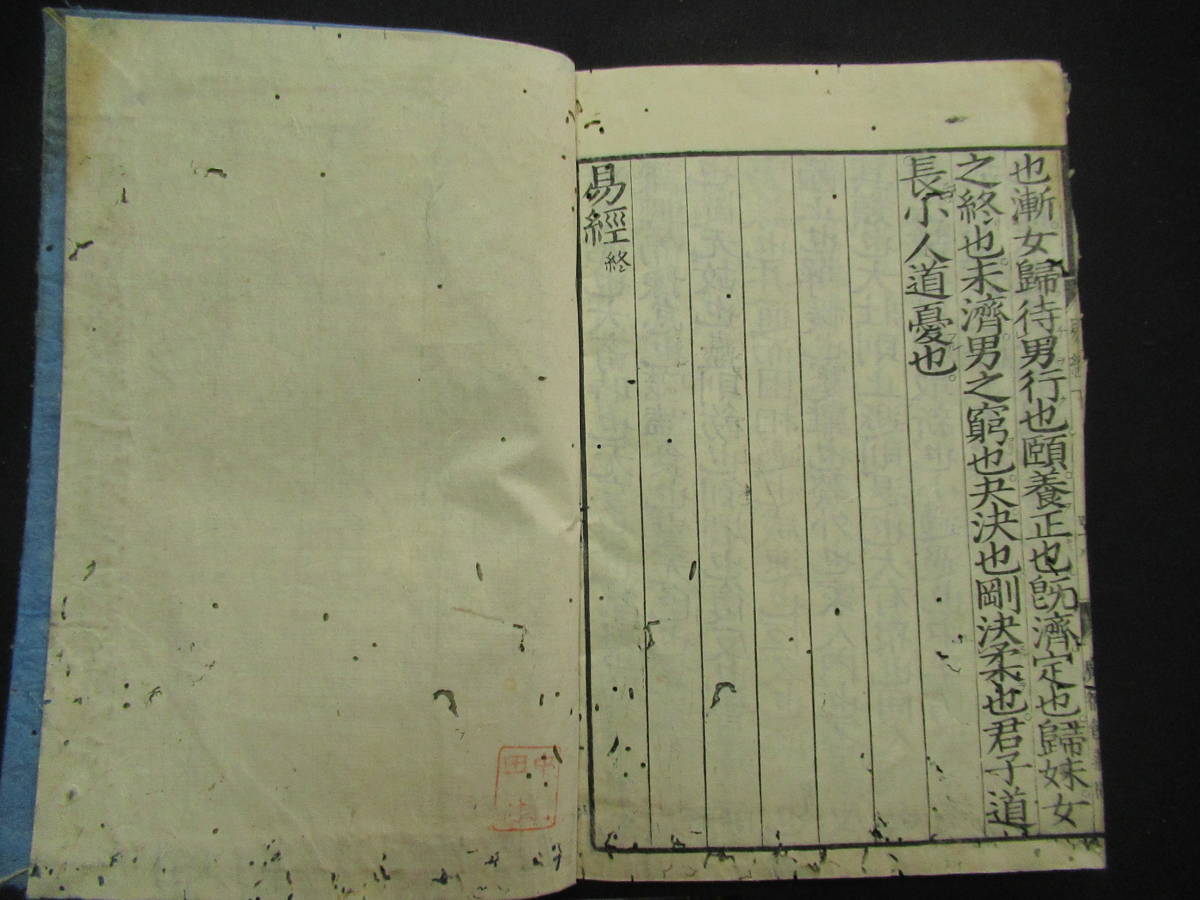 也漸女歸待男行也頤養正也既濟定也歸妹女
之終也未濟男之窮也夬決也剛決柔也君子道
長小人道憂也
易經終
中田